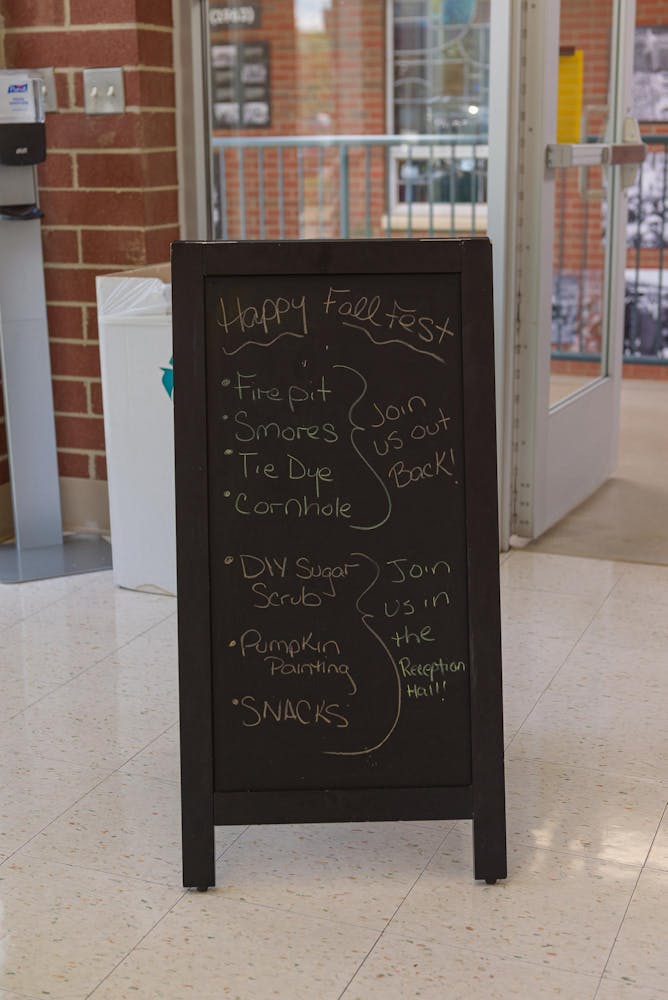 (1963)
PURELL
Happy Fall Fest
• Fire pit
• Smores
• Tie Dye
• Cornhole
Join
us out
Back!
• DIY Sugar
Scrub
• Pumpkin
Painting
• SNACKS
Join
us in
the
Reception
Hall!